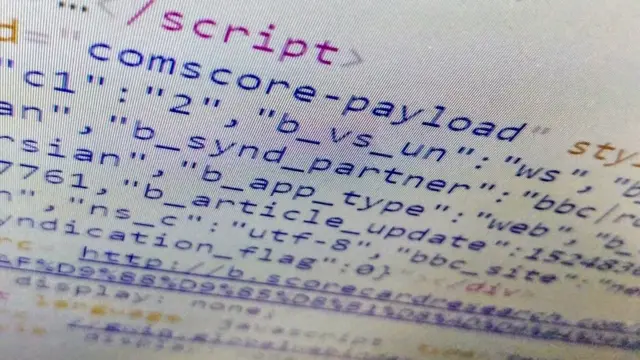 …</script>
d="comscore-payload" sty
"c1":"2", "b_vs_un":"ws", "b
an", "b_synd_partner":"bbc|r
rsian", "b_app_type":"web", "b_
7761, "b_article_update":152483
n", "ns_c":"utf-8", "bbc_site":"ne
yndication_flag":0}"></div>
rc http://b.scorecardresearch.com
display: none;
language javascript